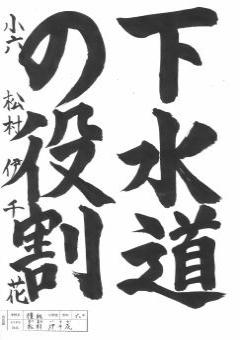 下水道
の役割
小六 松村 伊千花